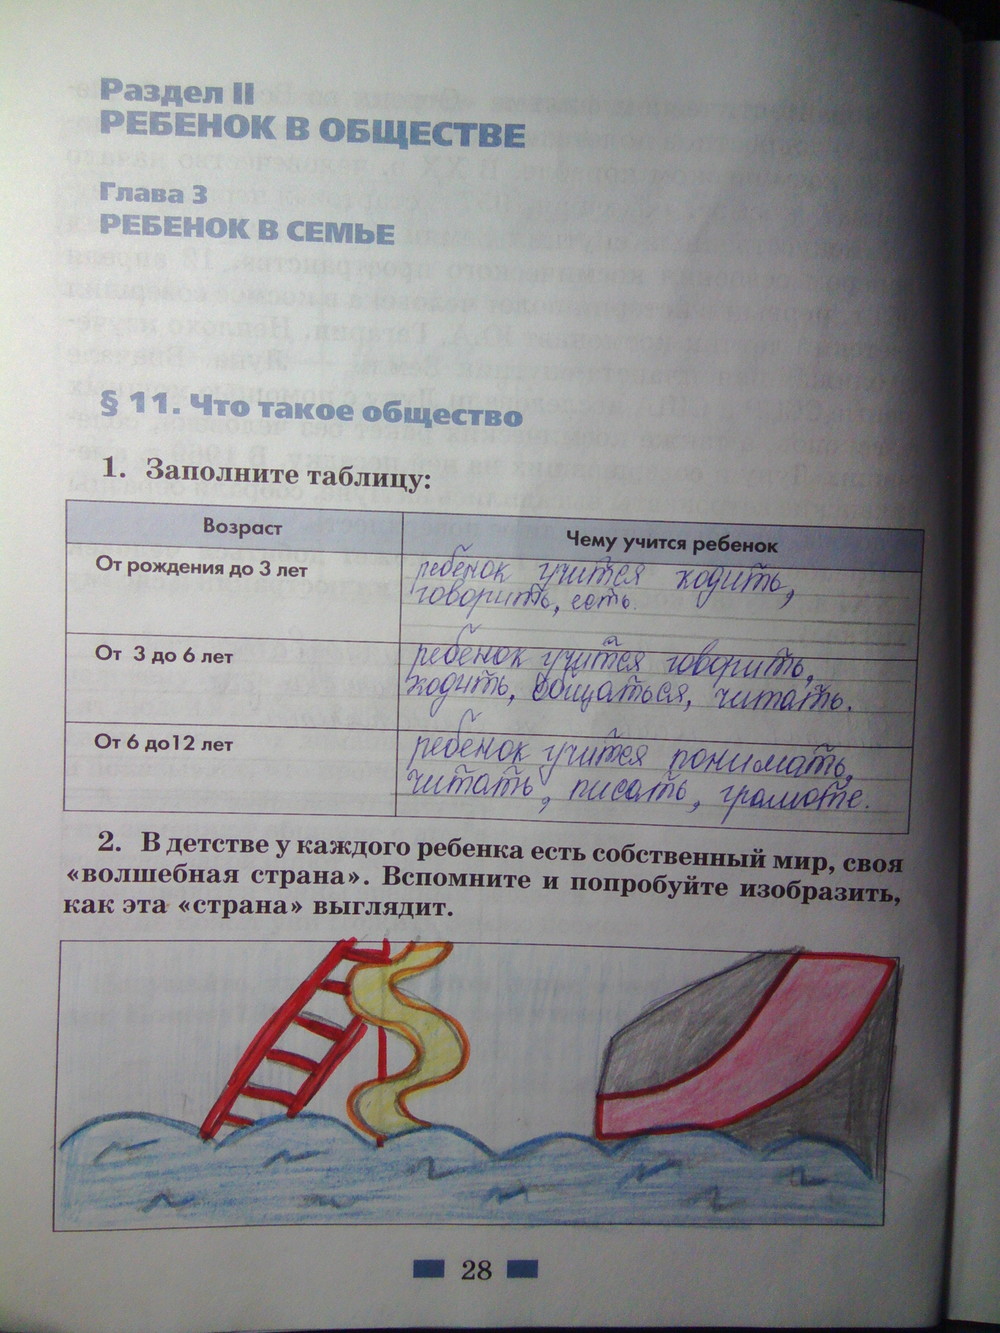 Раздел II
РЕБЕНОК В ОБЩЕСТВЕ
Глава 3
РЕБЕНОК В СЕМЬЕ
§ 11. Что такое общество
1. Заполните таблицу:
Возраст
Чему учится ребенок
От рождения до 3 лет
ребенок учится ходить,
говорить, есть.
От 3 до 6 лет
ребенок учится говорить,
ходить, общаться, читать.
От 6 до12 лет
ребенок учится понимать,
читать, писать, грамоте.
2. В детстве у каждого ребенка есть собственный мир, своя
«волшебная страна». Вспомните и попробуйте изобразить,
как эта «страна» выглядит.
28